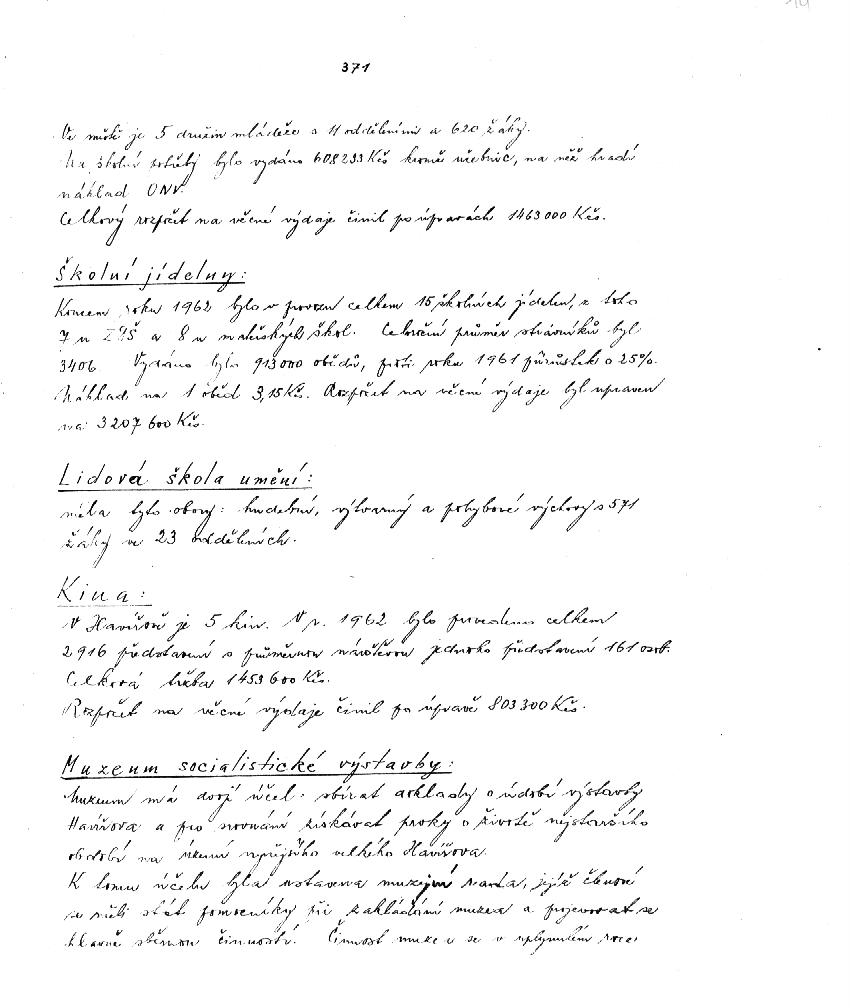 371
Ve městě je 5 družin mládeže s 11 odděleními a 620 žáky.
Na školní potřeby bylo vydáno 608 293 Kčs kromě učebnic, na něž hradí
náklad ONV.
Celkový rozpočet na věcné výdaje činil po úpravách 1463 000 Kčs.
Školní jídelny:
Koncem roku 1962 bylo v provozu celkem 15 školních jídelen, z toho
7 u ZDŠ a 8 u mateřských škol. Celoroční průměr strávníků byl
3406. Vydáno bylo 913 000 obědů, proti roku 1961 přírůstek o 25%.
Náklad na 1 oběd 3,15 Kčs. Rozpočet na věcné výdaje byl upraven
na 3207 600 Kčs.
Lidová škola umění:
měla tyto obory: hudební, výtvarný a pohybové výchovy s 571
žáky ve 23 odděleních.
Kina:
V Havířově je 5 kin. V r. 1962 bylo provedeno celkem
2 916 představení s průměrnou návštěvou jednoho představení 161 osob.
Celková tržba 1453 600 Kčs.
Rozpočet na věcné výdaje činil po úpravě 803 300 Kčs.
Muzeum socialistické výstavby:
Muzeum má dvojí účel: sbírat doklady o údobí výstavby
Havířova a pro srovnání získávat prvky o životě nejstaršího
období na území nynějšího velkého Havířova.
K tomu účelu byla ustavena muzejní rada, jejíž členové
se měli stát pomocníky při zakládání muzea a projevovat se
hlavně sběrnou činností. Činnost muzea se v uplynulém roce